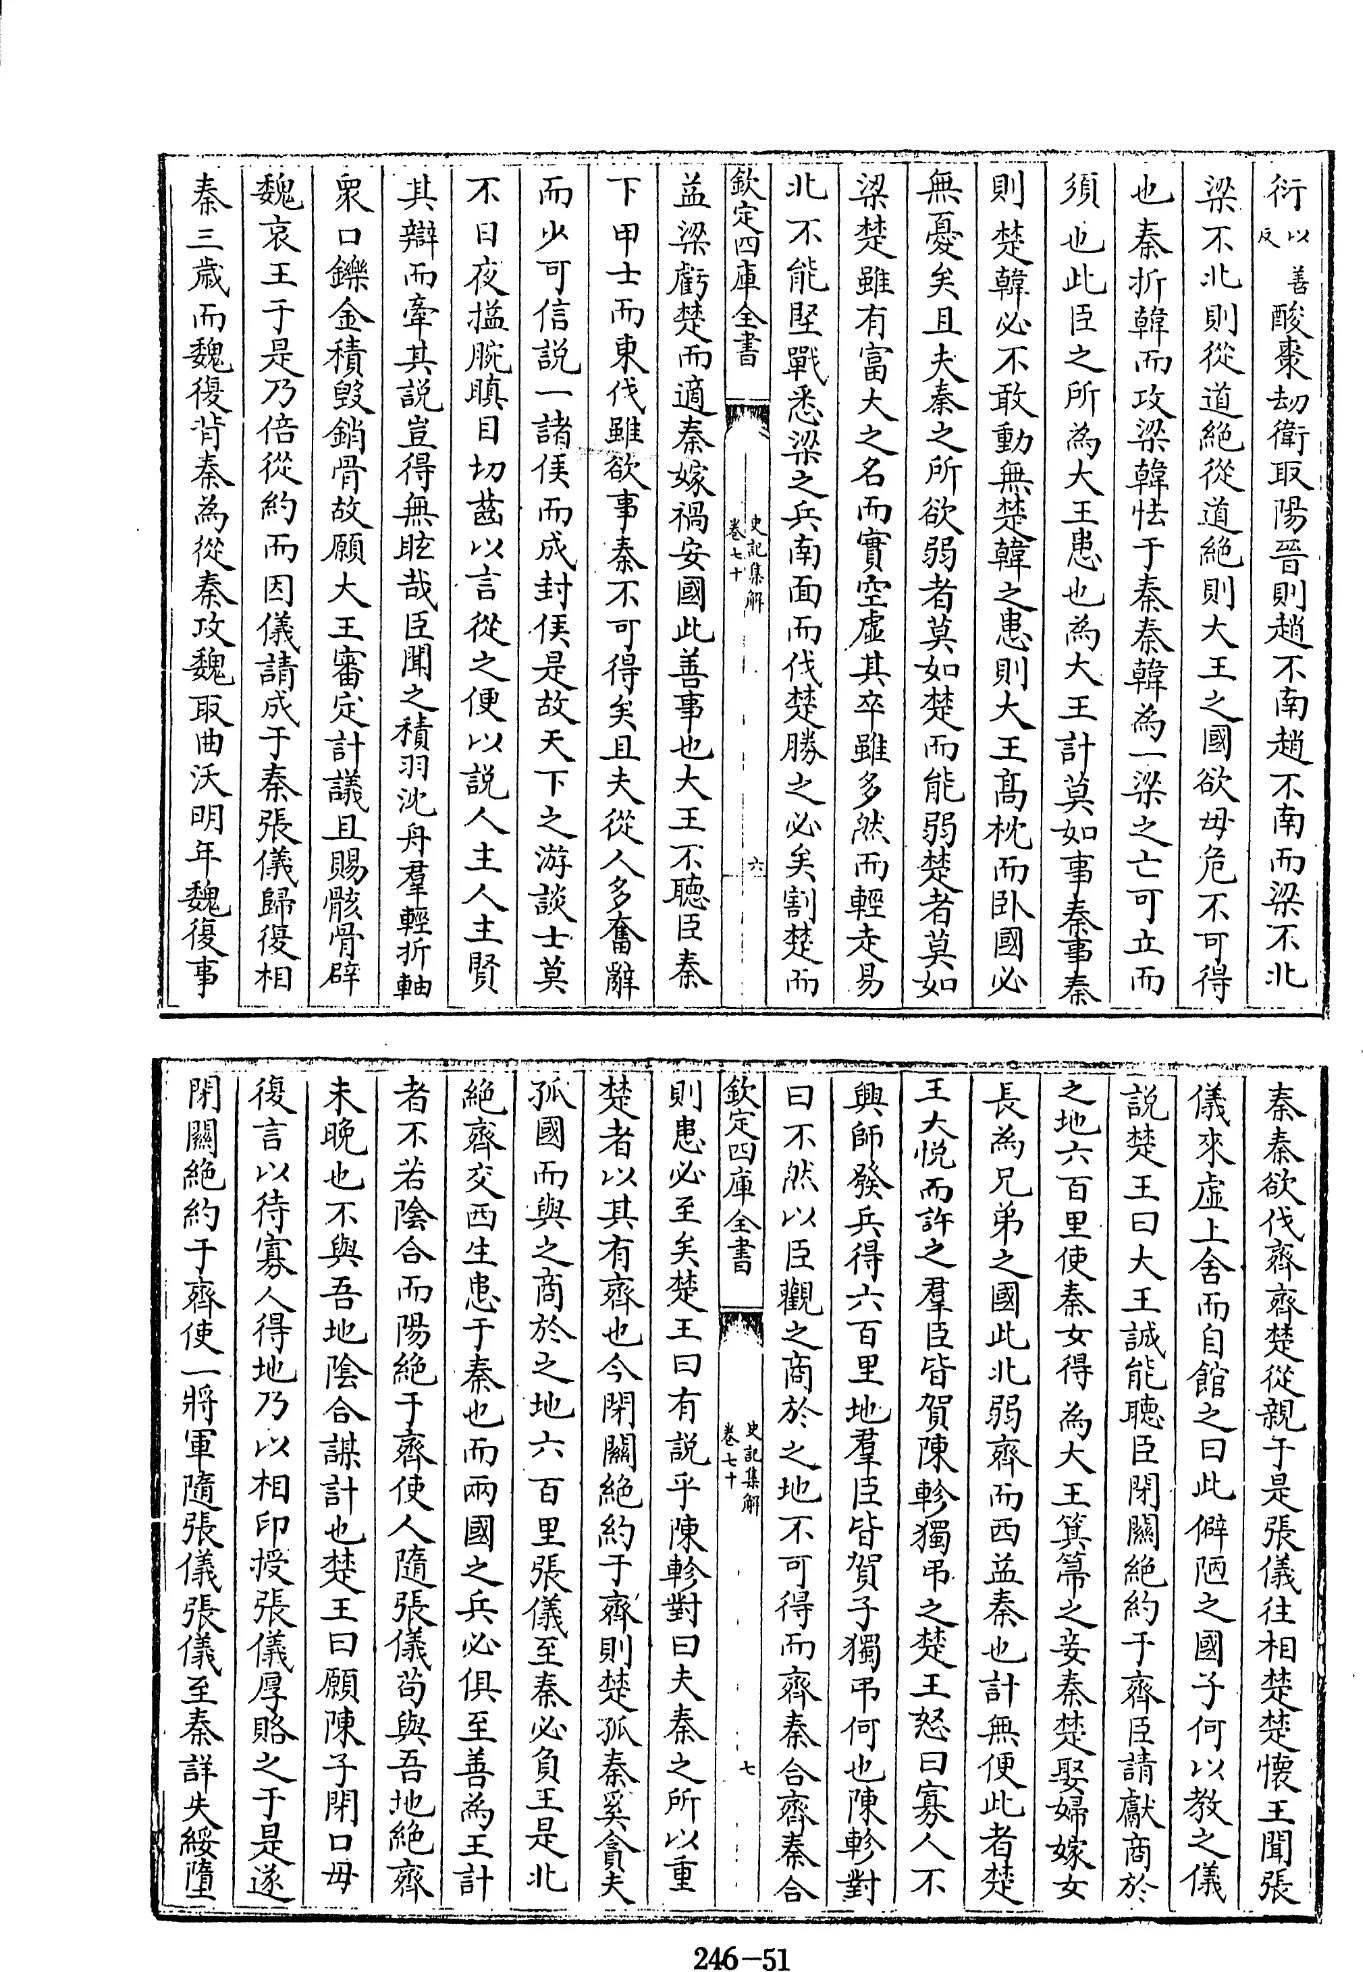 衍以善反酸棗劫衛取陽晉則趙不南趙不南而梁不北
梁不北則從道絶從道絶則大王之國欲毋危不可得
也秦折韓而攻梁韓怯于秦秦韓為一梁之亡可立而
須也此臣之所為大王患也為大王計莫如事秦事秦
則楚韓必不敢動無楚韓之患則大王髙枕而卧國必
無憂矣且夫秦之所欲弱者莫如楚而能弱楚者莫如
梁楚雖有富大之名而實空虛其卒雖多然而輕走易
北不能堅戰悉梁之兵南面而伐楚勝之必矣割楚而
欽定四庫全書
史記集解
卷七十
六
益梁虧楚而適秦嫁禍安國此善事也大王不聽臣秦
下甲士而東伐雖欲事秦不可得矣且夫從人多奮辭
而少可信説一諸侯而成封侯是故天下之游談士莫
不日夜搤腕瞋目切齒以言從之便以説人主人主賢
其辯而牽其説豈得無眩哉臣聞之積羽沈舟羣輕折軸
衆口鑠金積毁銷骨故願大王審定計議且賜骸骨辟
魏哀王于是乃倍從約而因儀請成于秦張儀歸復相
秦三歲而魏復背秦為從秦攻魏取曲沃明年魏復事
秦秦欲伐齊齊楚從親于是張儀往相楚楚懷王聞張
儀來虛上舍而自館之曰此僻陋之國子何以教之儀
説楚王曰大王誠能聽臣閉關絶約于齊臣請獻商於
之地六百里使秦女得為大王箕箒之妾秦楚娶婦嫁女
長為兄弟之國此北弱齊而西益秦也計無便此者楚
王大悦而許之羣臣皆賀陳軫獨弔之楚王怒曰寡人不
興師發兵得六百里地羣臣皆賀子獨弔何也陳軫對
曰不然以臣觀之商於之地不可得而齊秦合齊秦合
欽定四庫全書
史記集解
卷七十
七
則患必至矣楚王曰有説乎陳軫對曰夫秦之所以重
楚者以其有齊也今閉關絶約于齊則楚孤秦奚貪夫
孤國而與之商於之地六百里張儀至秦必負王是北
絶齊交西生患于秦也而兩國之兵必俱至善為王計
者不若陰合而陽絶于齊使人隨張儀茍與吾地絶齊
未晚也不與吾地陰合謀計也楚王曰願陳子閉口毋
復言以待寡人得地乃以相印授張儀厚賂之于是遂
閉關絶約于齊使一將軍隨張儀張儀至秦詳失綏墮
246-51